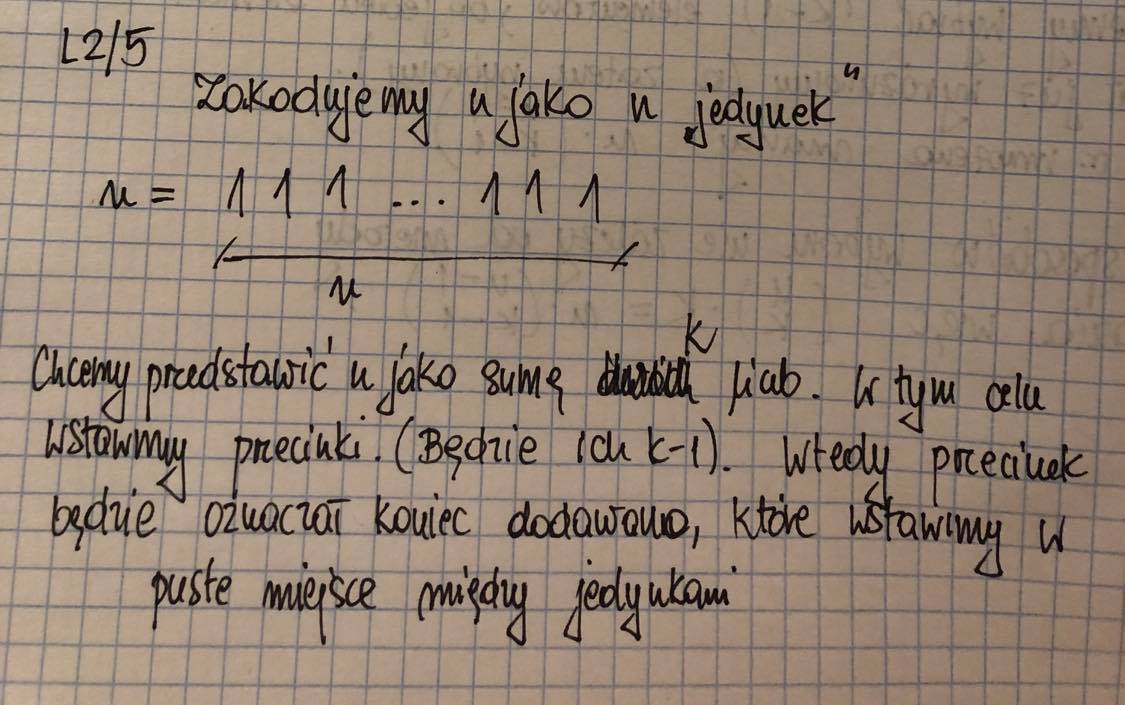 L2/5
Zakodujemy n jako n jedynek"
n = 1 1 1 ... 1 1 1
n
k
Chcemy przedstawić n jako sumę liczb. W tym celu
wstawmy przecinki. (Będzie ich k-1). Wtedy przecinek
będzie oznaczał koniec dodawania, które wstawimy w
puste miejsce między jedynkami